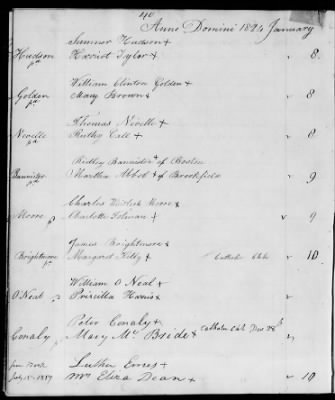 40
Anno Domini 1894 January
Sumner Hudson +
Hudson pd Harriot Tyler + v 8.
William Clinton Golden +
Golden pd Mary Brown + v 8
Thomas Neville +
Neville pd Ruthy Call + v 8.
Ridley Bannister + of Boston
Bannister pd Martha Abbot + of Brookfield v 9
Charles Moore +
Moore pd Charlotte + v 9
James Brightmore +
Brightmore pd Margaret Kelly + Catholic Chh v 10
William O Neal +
O Neal pd Priscilla Harris + v
Peter Conaly +
Conaly pd Mary Mc Bride + Catholic Chh Dec 28
Luther +
July 15 Mrs Eliza Dean + v 10